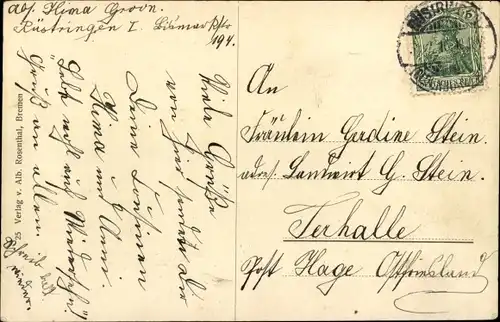 Abs. Hima Groon.
Rüstringen I. Bismarkstr
194.
Viele Grüße
von hier sendet dir
Deine Cousinen
Hima und Anni.
Lebt wohl auf Wiedersehn!
Gruß an allen.
Schreib bald
wieder.
25 Verlag v. Alb. Rosenthal, Bremen
RÜSTRINGEN
An
Fräulein Gerdine Stein.
adr. Landwirt G. Stein.
Terhalle
Post Hage Ostfriesland